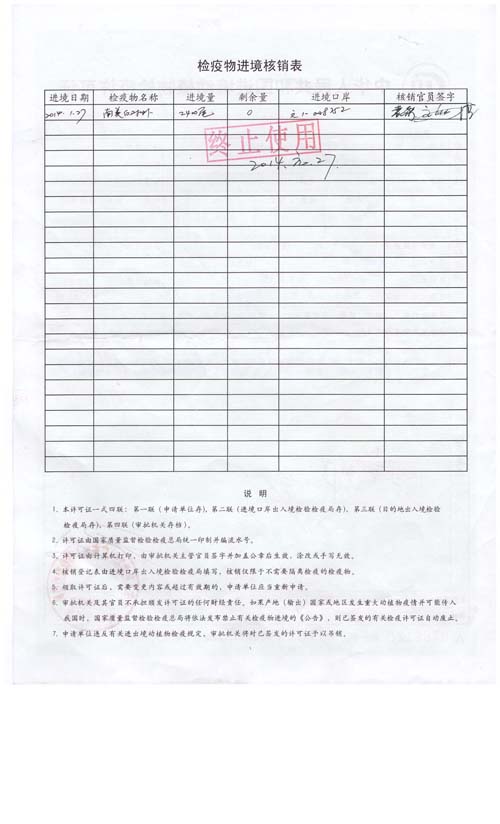 检疫物进境核销表
进境日期 检疫物名称 进境量 剩余量 进境口岸 核销官员签字
2014.1.27 南美白对虾 2400尾 0
终止使用
2014. 27
说 明
1、本许可证一式四联：第一联（申请单位存），第二联（进境口岸出入境检验检疫局存），第三联（目的地出入境检验
检疫局存），第四联（审批机关存档）。
2、许可证由国家质量监督检验检疫总局统一印制并编流水号。
3、许可证由计算机打印，由审批机关主管官员签字并加盖公章后生效，涂改或手写无效。
4、核销登记表由进境口岸出入境检验检疫局填写，核销仅限于不需要隔离检疫的检疫物。
5、领取许可证后，需要变更内容或超过有效期的，申请单位应当重新申请。
6、审批机关及其官员不承担颁发许可证的任何财经责任。如果产地（输出）国家或地区发生重大动植物疫情并可能传入
我国时，国家质量监督检验检疫总局将依法发布禁止有关检疫物进境的《公告》，则已签发的有关检疫许可证自动废止。
7、申请单位违反有关进出境动植物检疫规定，审批机关将对已签发的许可证予以吊销。